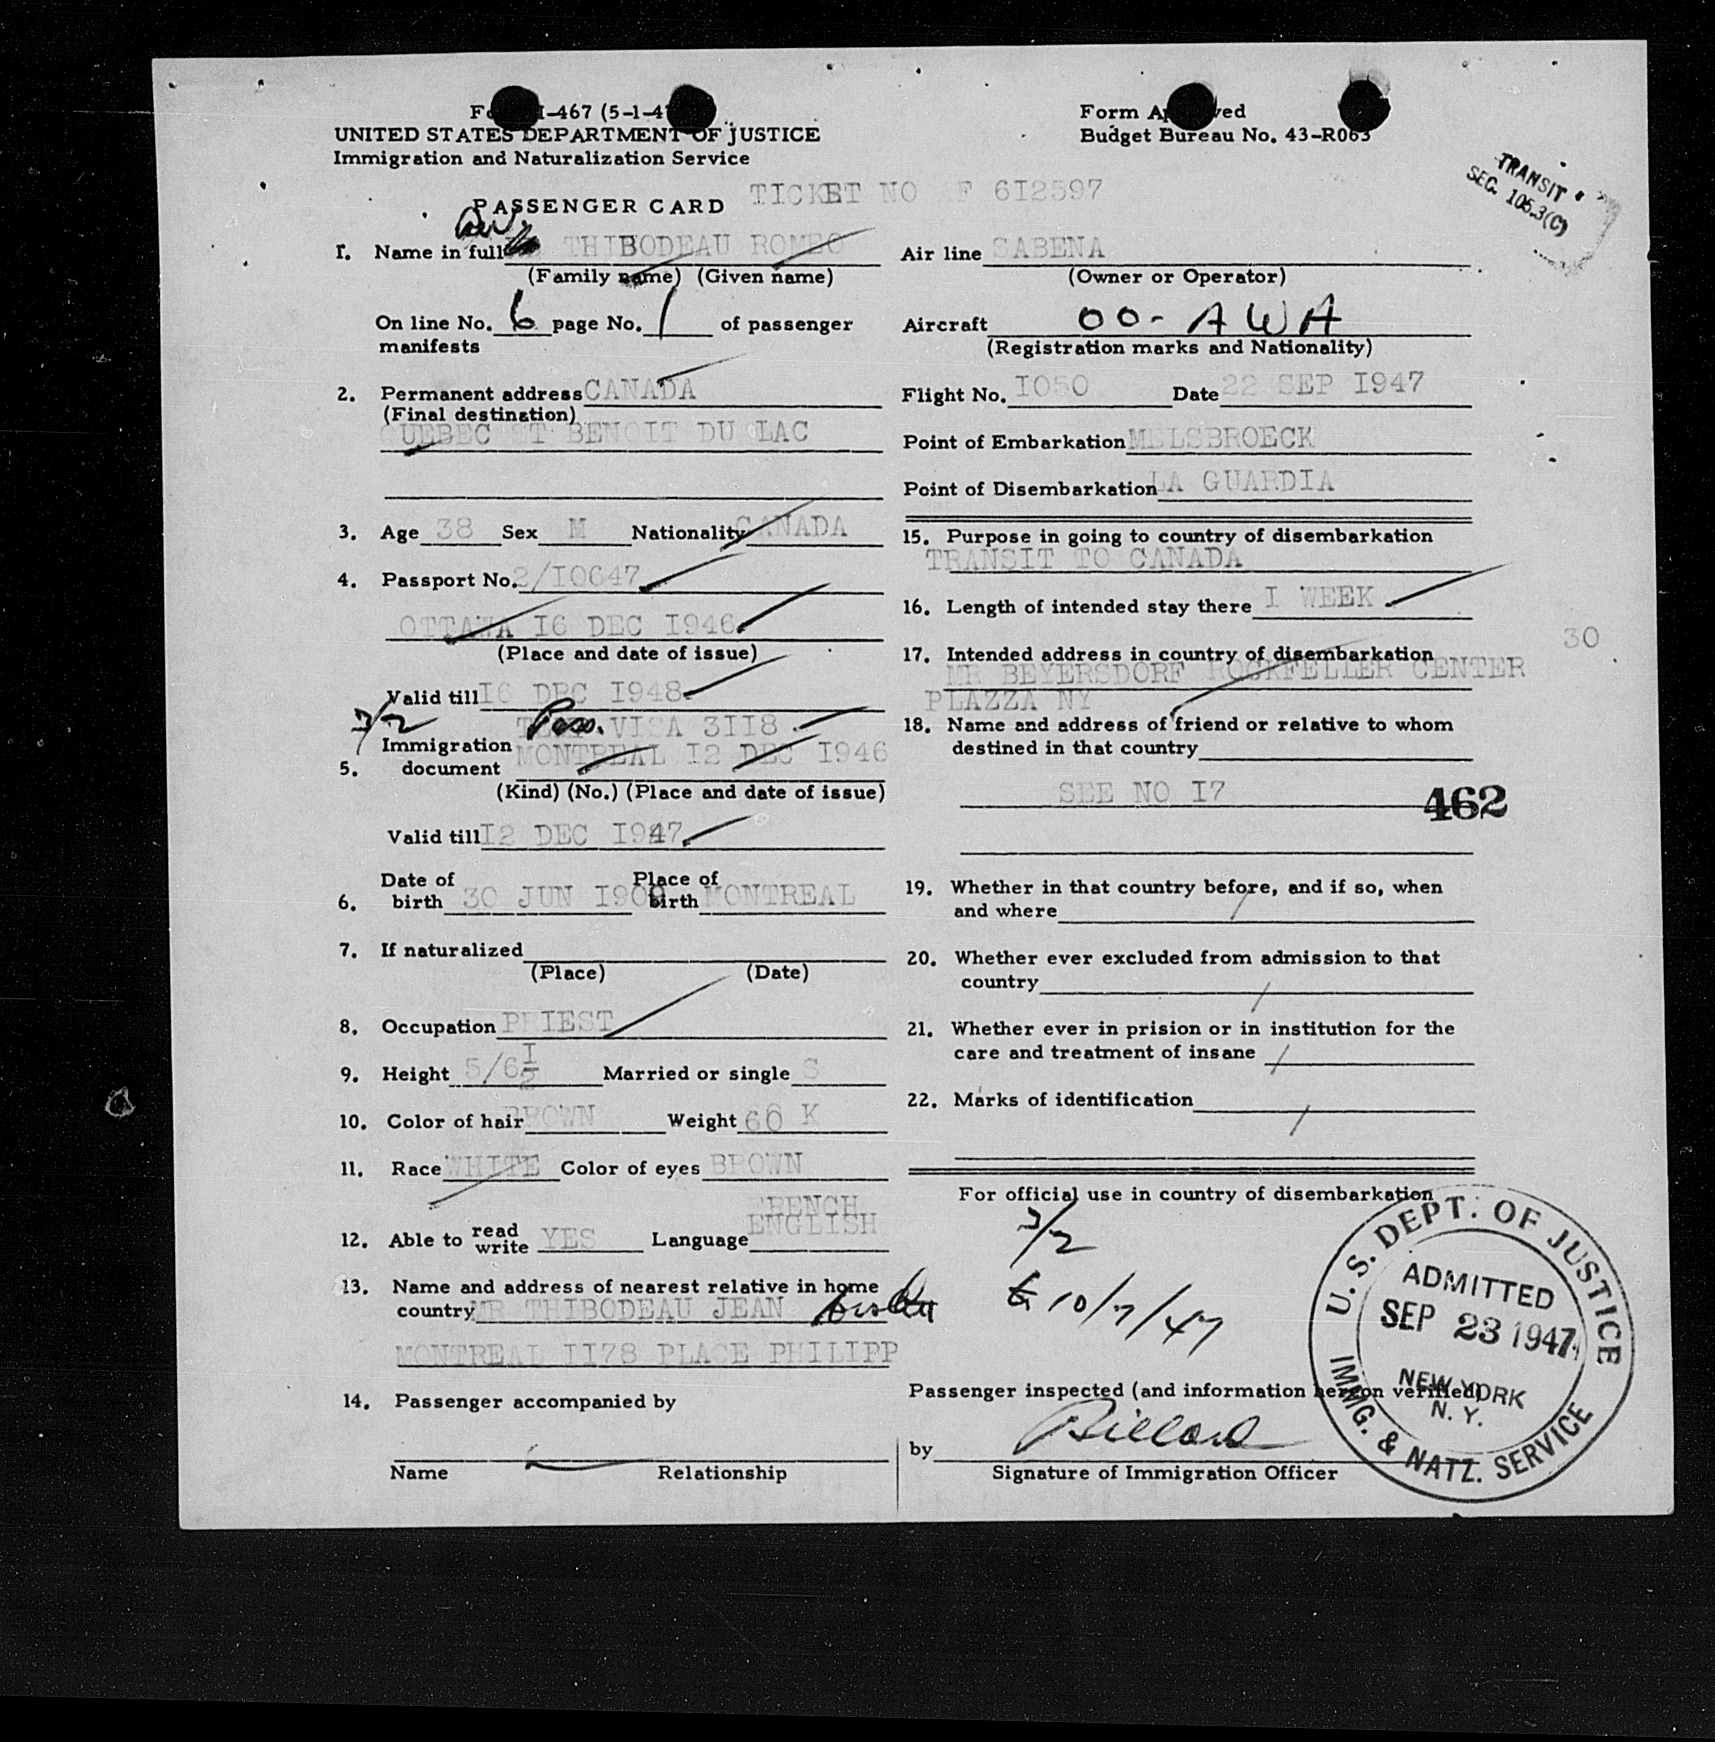 Form I-467 (5-1-4
UNITED STATES DEPARTMENT OF JUSTICE
Immigration and Naturalization Service
Form Approved
Budget Bureau No. 43-R063
TRANSIT
SEC. 105.3(C)
PASSENGER CARD TICKET NO F 6I2597
1. Name in full THIBODEAU ROMEO
(Family name) (Given name)
On line No. 6 page No. 1 of passenger
manifests
2. Permanent address CANADA
(Final destination)
QUEBEC ST BENOIT DU LAC
3. Age 38 Sex M Nationality CANADA
4. Passport No. 2/I0647
OTTAWA I6 DEC I946
(Place and date of issue)
Valid till I6 DEC I948
7/2
Pass. VISA 3II8
Immigration
5. document MONTREAL I2 DEC I946
(Kind) (No.) (Place and date of issue)
Valid till I2 DEC I947
Date of Place of
6. birth 30 JUN I909 birth MONTREAL
7. If naturalized
(Place) (Date)
8. Occupation PRIEST
9. Height 5/6 I/2 Married or single S
10. Color of hair BROWN Weight 66 K
11. Race WHITE Color of eyes BROWN
FRENCH
12. Able to read write YES Language ENGLISH
13. Name and address of nearest relative in home
country MR THIBODEAU JEAN brother
MONTREAL II78 PLACE PHILIPP
14. Passenger accompanied by
Name Relationship
Air line SABENA
(Owner or Operator)
Aircraft OO-AWA
(Registration marks and Nationality)
Flight No. I050 Date 22 SEP I947
Point of Embarkation MELSBROECK
Point of Disembarkation LA GUARDIA
15. Purpose in going to country of disembarkation
TRANSIT TO CANADA
16. Length of intended stay there I WEEK
30
17. Intended address in country of disembarkation
MR BEYERSDORF ROCKFELLER CENTER
PLAZZA NY
18. Name and address of friend or relative to whom
destined in that country
SEE NO I7
462
19. Whether in that country before, and if so, when
and where
20. Whether ever excluded from admission to that
country
21. Whether ever in prision or in institution for the
care and treatment of insane
22. Marks of identification
For official use in country of disembarkation
7/2
10/7/47
U. S. DEPT. OF JUSTICE
ADMITTED
SEP 23 1947
NEW YORK
N. Y.
IMMG. & NATZ. SERVICE
Passenger inspected (and information hereon verified)
by
Signature of Immigration Officer